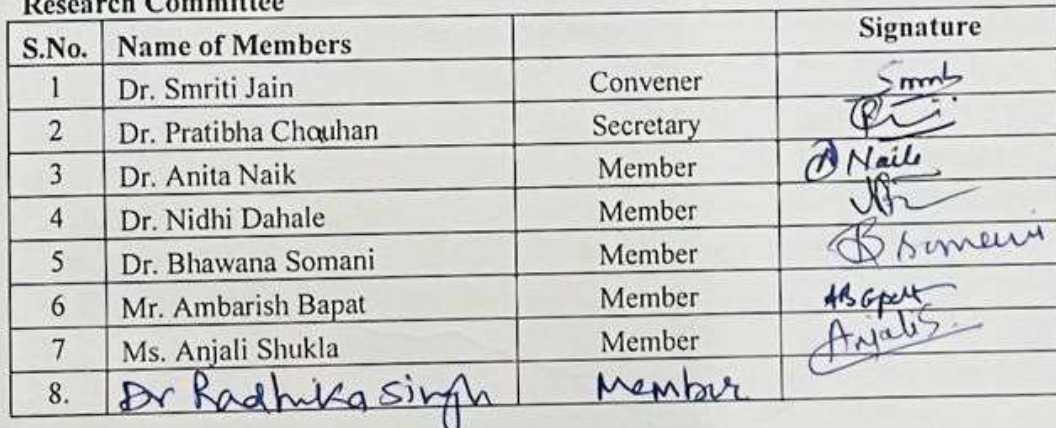 Research Committee
S.No. Name of Members Signature
1 Dr. Smriti Jain Convener
2 Dr. Pratibha Chouhan Secretary
3 Dr. Anita Naik Member A Naik
4 Dr. Nidhi Dahale Member
5 Dr. Bhawana Somani Member B Somani
6 Mr. Ambarish Bapat Member ABapat
7 Ms. Anjali Shukla Member AnjaliS.
8. Dr Radhika Singh Member